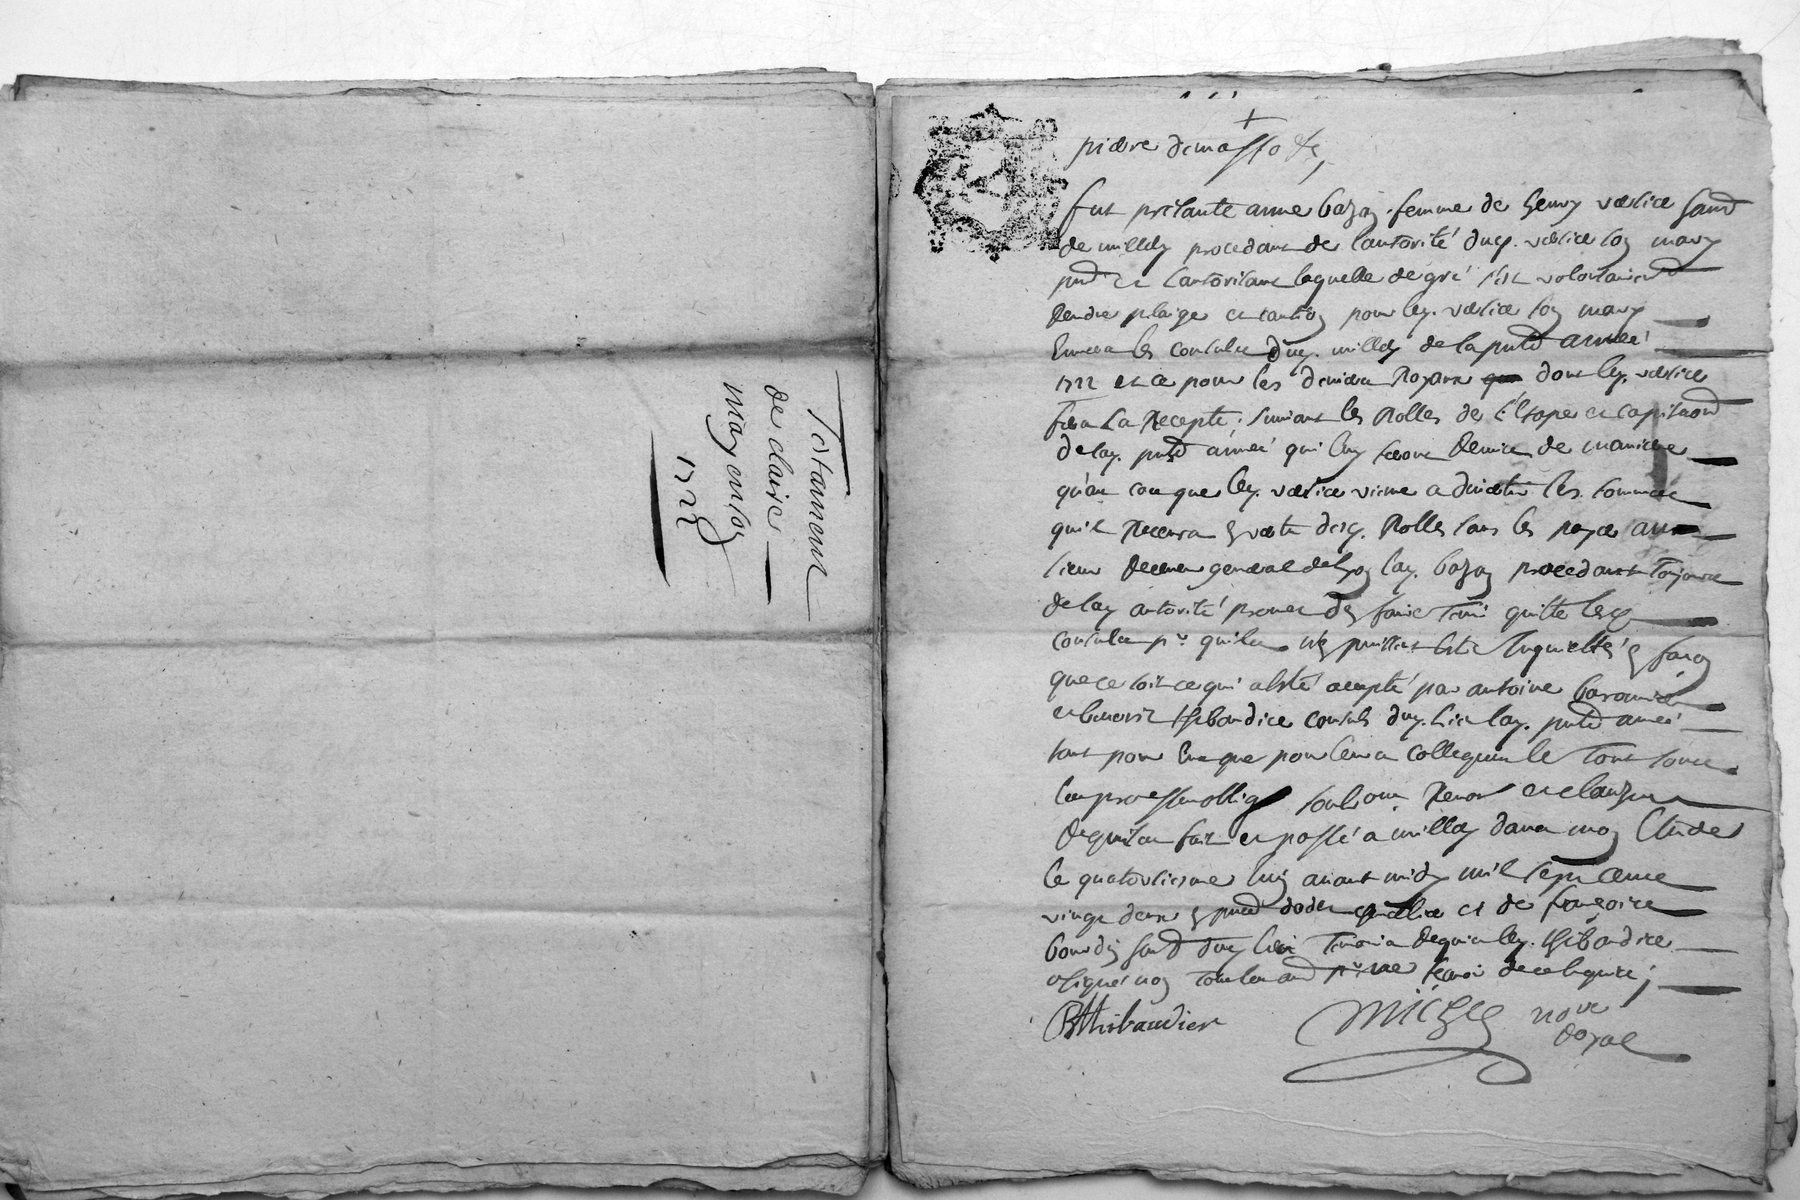 Testament
de claire
mayenson
1728
+
piere demasso &c,
fut presante anne bazon femme de henry verlier hant
de millery procedant de l'autorité dud. verlier son mary
pnt et l'autorisant laquelle de gré s'est volontairemt
Rendue plaige et caution pour led. verlier son mary
Envers les consulz dud. millery de la pnte année
1722 et ce pour les deniers Royaux dont led. verlier
fera La Recepte, suivant les Rolles de L'Etape et capitaon
de lad. pnte année qui luy seront Remis de maniere
qu'en cas que led. verlier vienne a les sommes
qu'il Recevra en vertu desd. Rolles sans les payer au
sieur Receveur general de Lyon lad. bazon procedant Toujours
de lad. autorité promet d'en faire Tenir quitte lesd.
consulz pr. qu'ils n'en puissent estre Inquiettés en façon
que ce soit ce qui a esté accepté par antoine
et benoist thibaudier consulz dud. lieu lad. pnte année
tant pour Eux que pour leurs collegues le Tout sous
Les promesses oblig. soubmon. Renon. et clauzes
De quoi fait et passé a millery dans mon Etude
le quatorzieme avant midy mil sept cents
vingt deux en pnce et de françois
bourdin hant dud. lieu Temoins Requis led. thibaudier
a signé non ne sçavoir de ce Requis,
B Thibaudier michel nore
Royal